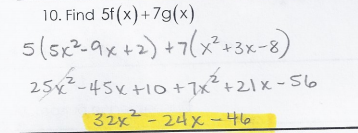 10. Find 5f(x)+7g(x)
5(5x²-9x+2)+7(x²+3x-8)
25x²-45x+10+7x²+21x-56
32x²-24x-46